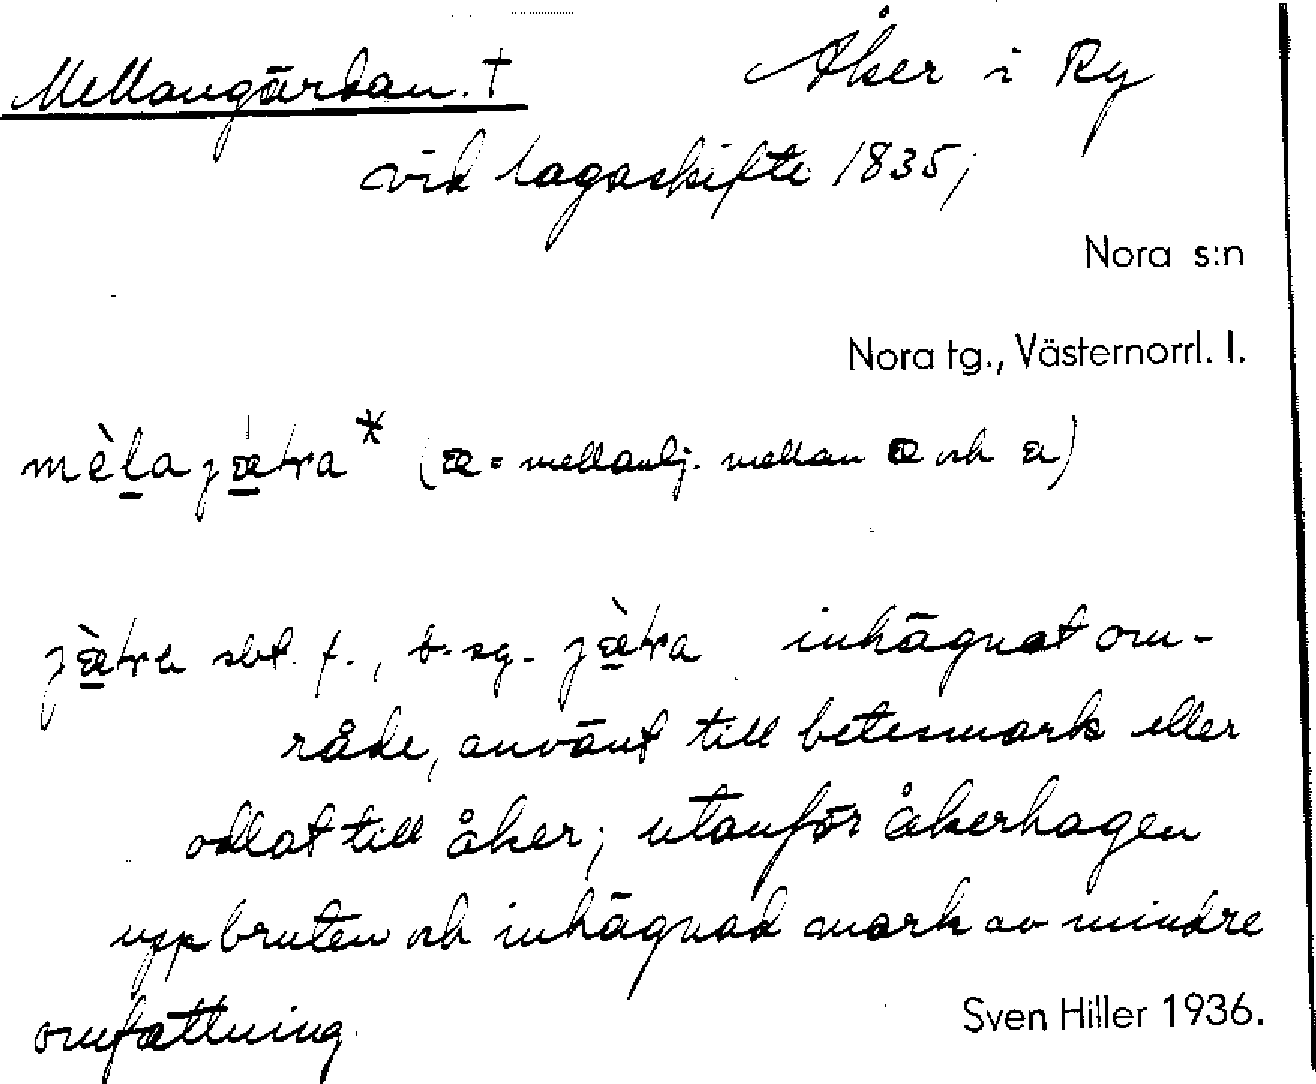 Mellangärdan. † Åker i Ry
vid lagaskifte 1835;
Nora s:n
Nora tg., Västernorrl. l.
(æ = mellanlj. mellan och a)
sbst. f., b. sg. inhägnat om-
råde, använt till betesmark eller
odlat till åker; utanför åkerhagen
uppbruten och inhägnad mark av mindre
omfattning.
Sven Hiller 1936.